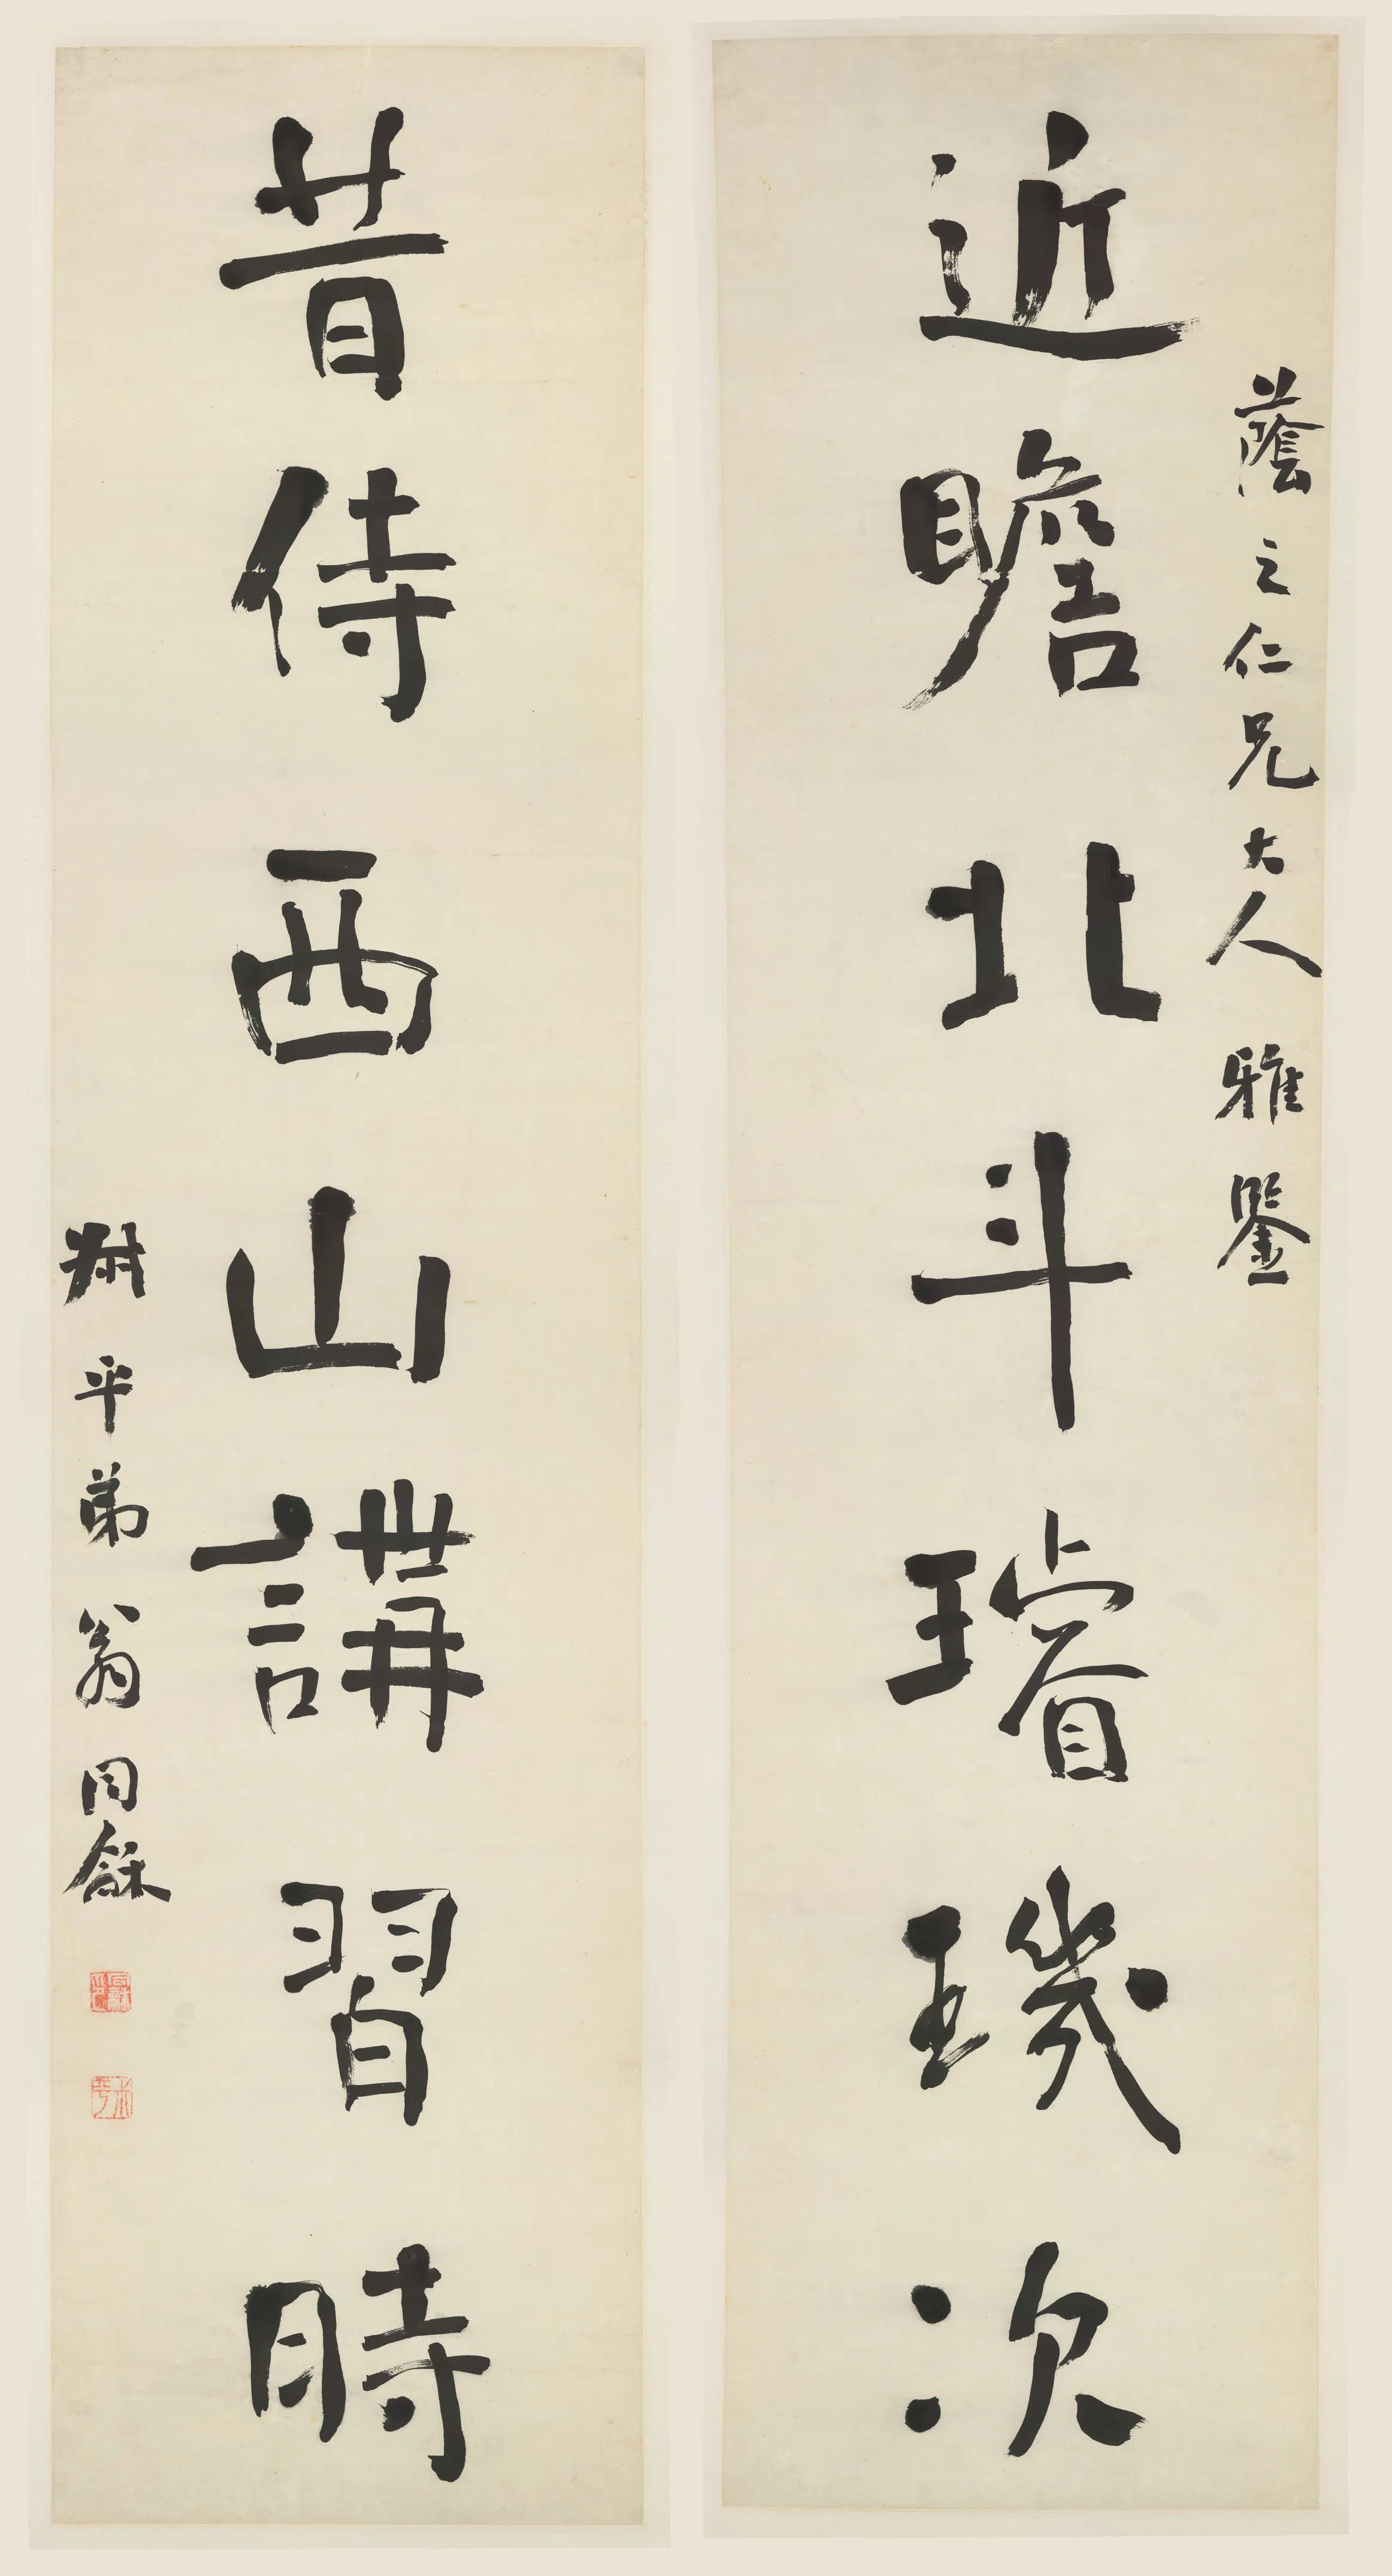 蔭之仁兄大人雅鑒
近瞻北斗璿璣次
昔侍西山講習時
尗平弟翁同龢